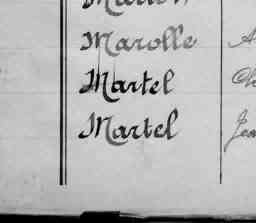 Marolle
Martel
Martel